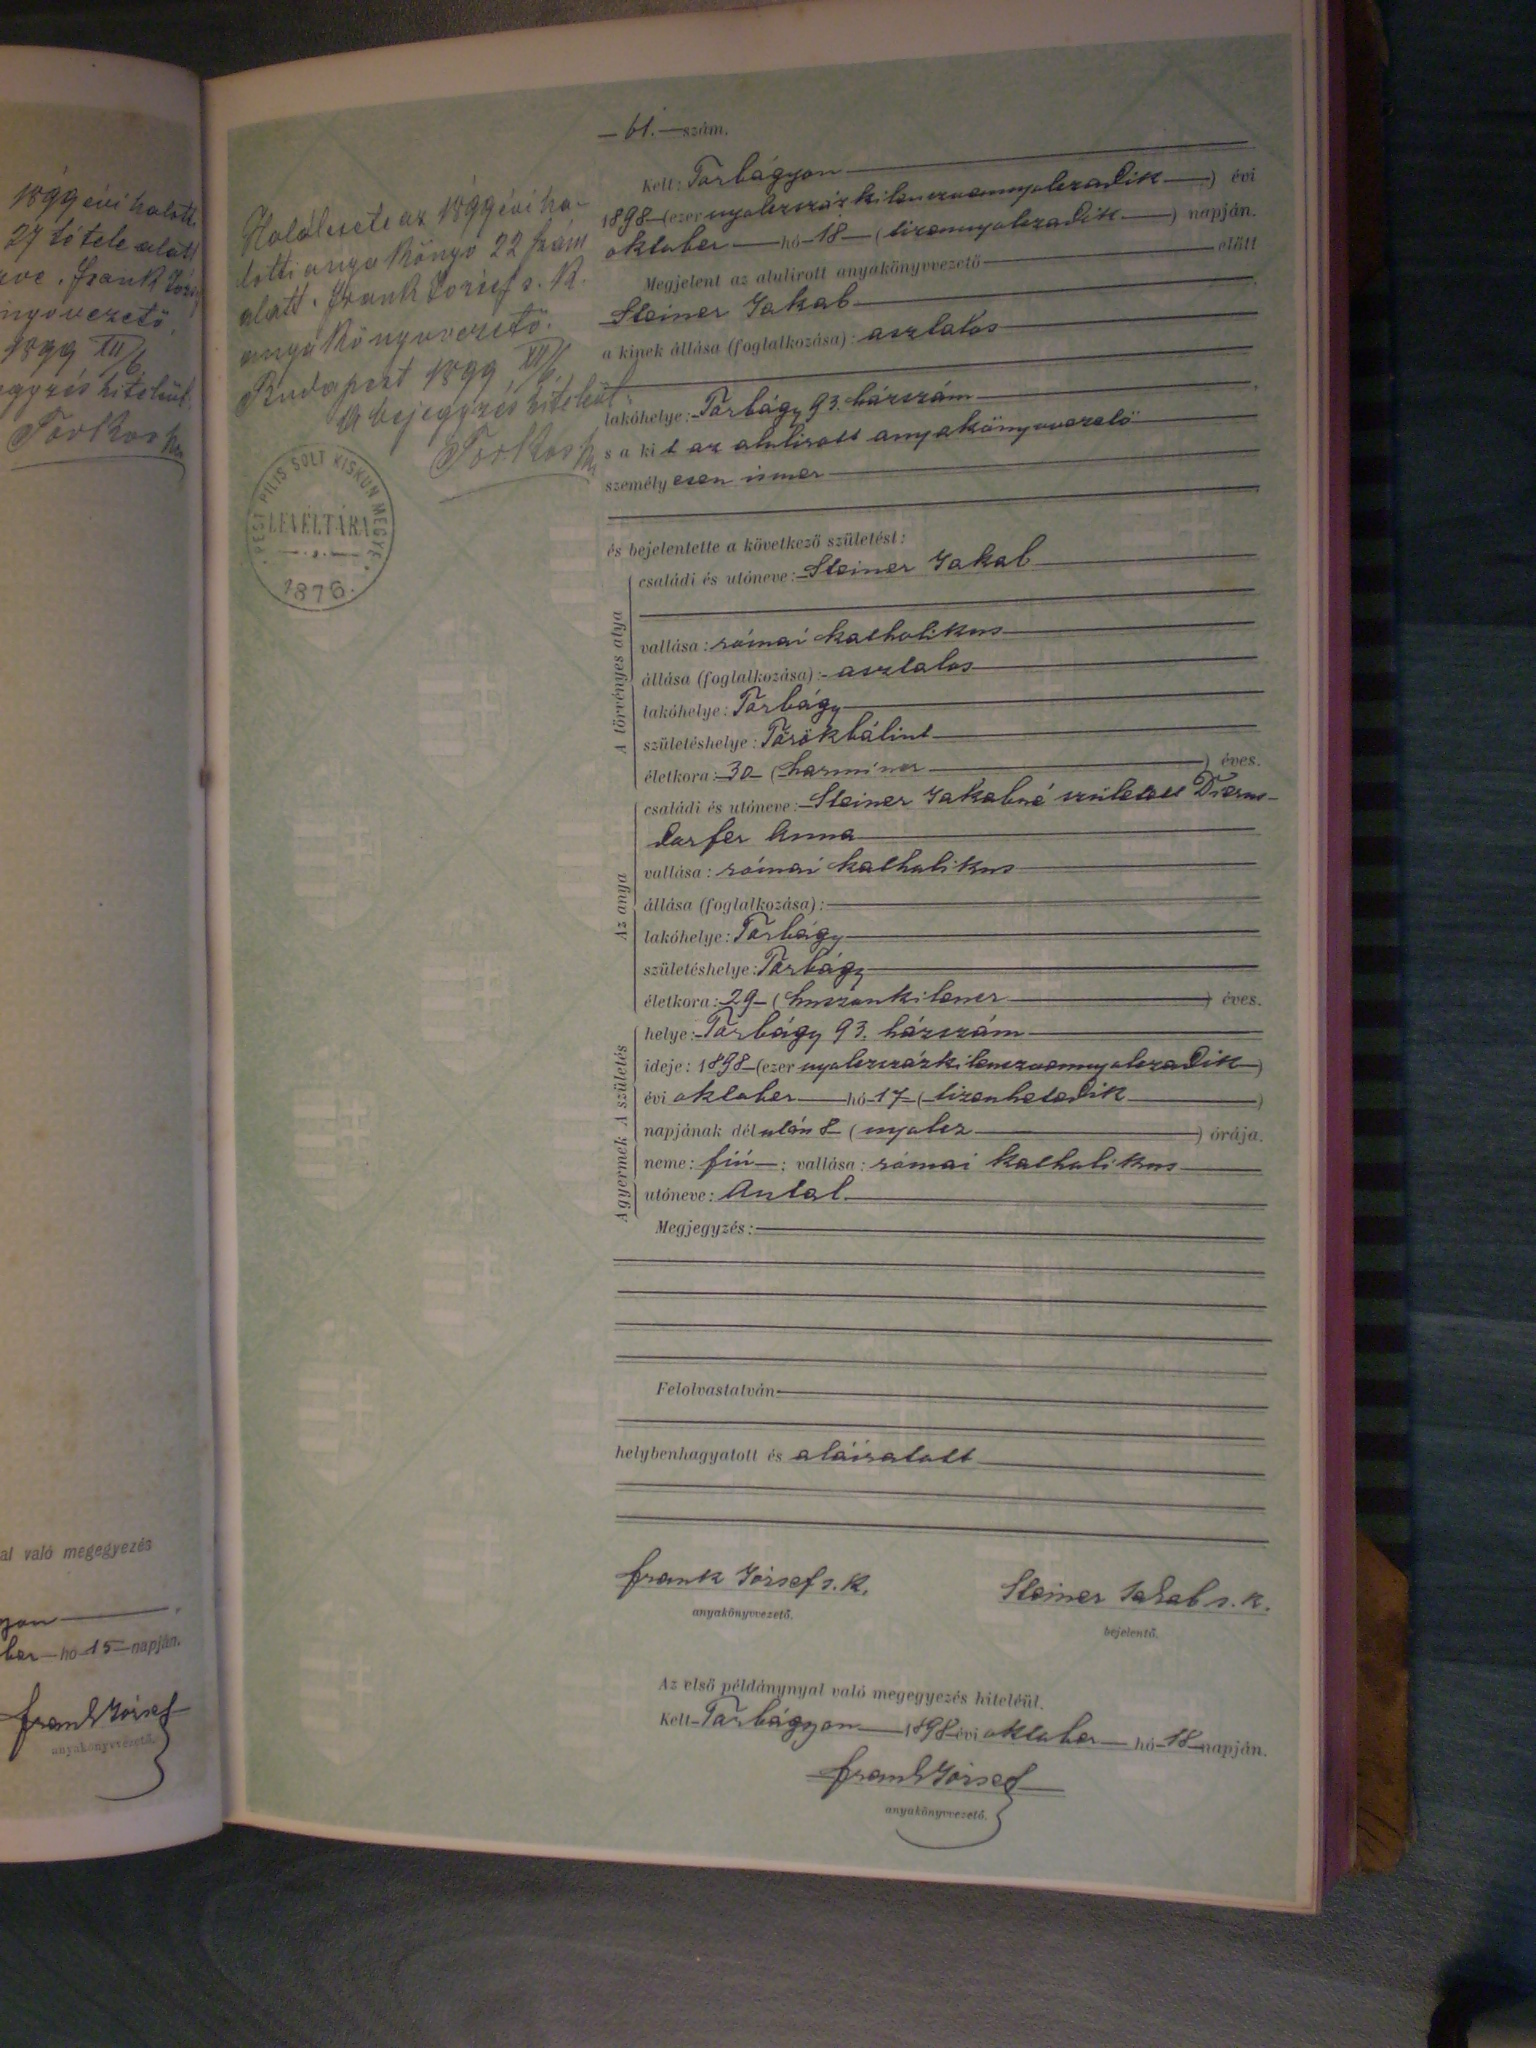 1899 évi halott
27 tétele alatt
ve. Frank József
nyvvezető.
1899 XII/6.
egyzés hiteléül.
Torkos
al való megegyezés
yon
ber hó 15 napján.
Frank József
anyakönyvvezető.
Halálesete az 1899 évi ha-
lotti anyakönyv 22 szám
alatt. Frank József s. k.
anyakönyvvezető.
Budapest 1899 XII/6.
A bejegyzés hiteléül:
Torkos
PEST PILIS SOLT KISKUN MEGYE
LEVÉLTÁRA
1876.
61. szám.
Kelt: Torbágyon
1898 (ezer nyolczszázkilenczvennyolczadik) évi
oktober hó 18 (tizennyolczadik) napján.
Megjelent az alulirott anyakönyvvezető előtt
Steiner Jakab
a kinek állása (foglalkozása): asztalos
lakóhelye: Torbágy 93. házszám
s a kit az alulirott anyakönyvvezető
személyesen ismer
és bejelentette a következő születést:
A törvényes atya
családi és utóneve: Steiner Jakab
vallása: római katholikus
állása (foglalkozása): asztalos
lakóhelye: Torbágy
születéshelye: Törökbálint
életkora: 30 (harmincz) éves.
Az anya
családi és utóneve: Steiner Jakabné született Dierns-
dorfer Anna
vallása: római katholikus
állása (foglalkozása):
lakóhelye: Torbágy
születéshelye: Torbágy
életkora: 29 (huszonkilencz) éves.
A születés
helye: Torbágy 93. házszám
ideje: 1898 (ezer nyolczszázkilenczvennyolczadik)
évi oktober hó 17 (tizenhetedik)
napjának délután 8 (nyolcz) órája.
A gyermek
neme: fiú; vallása: római katholikus
utóneve: Antal
Megjegyzés:
Felolvastatván
helybenhagyatott és aláiratott
Frank József s. k.
anyakönyvvezető.
Steiner Jakab s. k.
bejelentő.
Az első példánynyal való megegyezés hiteléül.
Kelt Torbágyon 1898 évi oktober hó 18 napján.
Frank József
anyakönyvvezető.